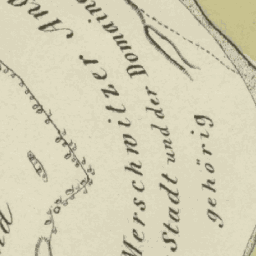 Merschwitzer Ang
Stadt und der Domaine
gehörig